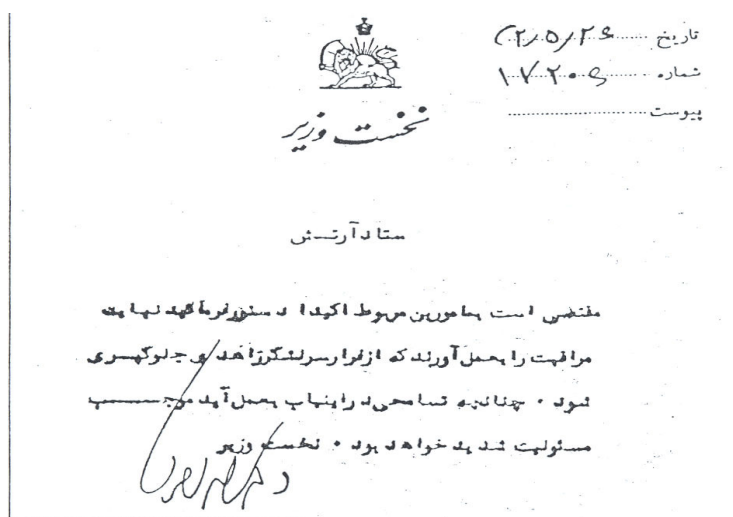 تاریخ
شماره ۱۷۲۰۶
پیوست
نخست وزیر
ستاد آرتش
مقتضی است بمامورین مربوط اکیدا دستور فرمائید نهایت
مراقبت را بعمل آورند که از فرار سرلشگر زاهدی جلوگیری
شود ۰ چنانچه تسامحی در اینباب بعمل آید موجب
مسئولیت شدید خواهد بود ۰ نخست وزیر